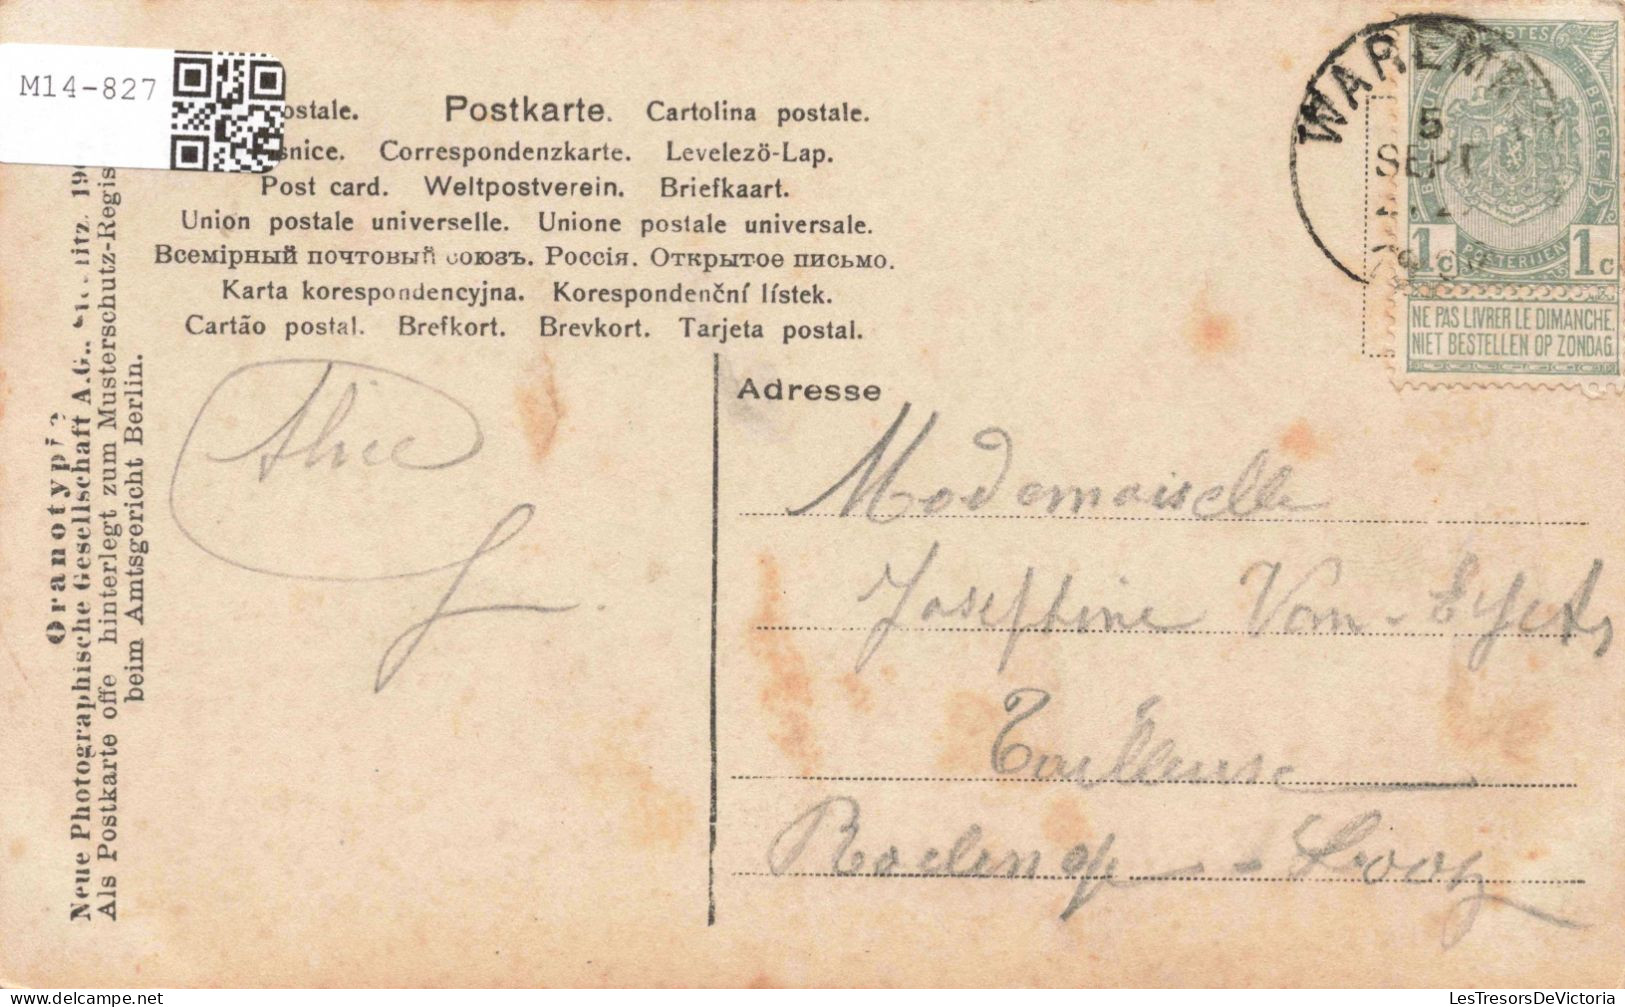 M14-827
ostale. Postkarte. Cartolina postale.
snice. Correspondenzkarte. Levelezö-Lap.
Post card. Weltpostverein. Briefkaart.
Union postale universelle. Unione postale universale.
Всемірный почтовый союзъ. Россія. Открытое письмо.
Karta korespondencyjna. Korespondenční lístek.
Cartão postal. Brefkort. Brevkort. Tarjeta postal.
Oranotypie
Neue Photographische Gesellschaft A.G., Steglitz. 19
Als Postkarte offe hinterlegt zum Musterschutz-Regis
beim Amtsgericht Berlin.
WAREMME
5
SEPT
POSTES
BELGIE
1c POSTERIJEN 1c
NE PAS LIVRER LE DIMANCHE.
NIET BESTELLEN OP ZONDAG.
Alice
Adresse
Mademoiselle
Josephine Van-Eycts
Tailleuse
Roclenge - Looz
LesTresorsDeVictoria
delcampe.net